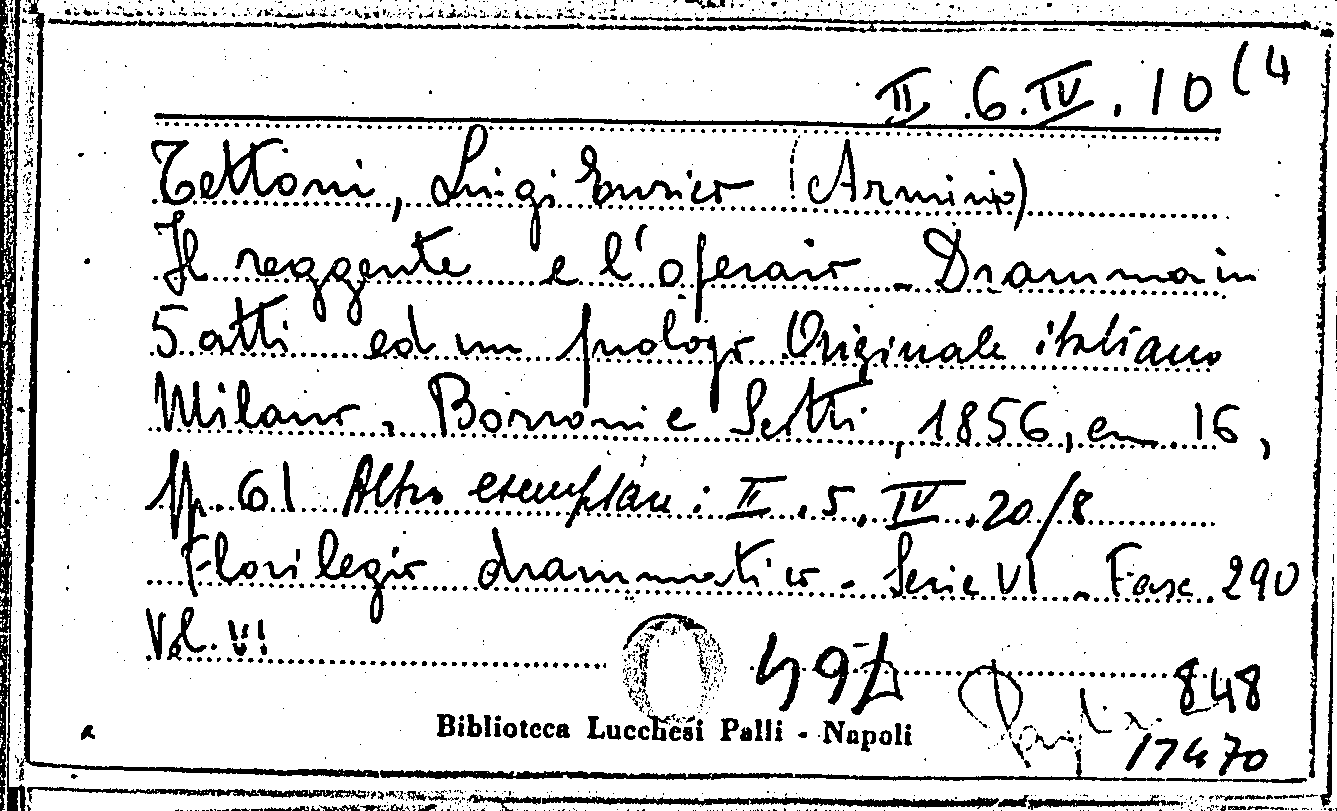 II.6.IV.10(4
Tettoni, Luigi Enrico (Arminio)
Il reggente e l'operaio - Dramma in
5 atti ed un prologo Originale italiano
Milano, Borroni e Scotti, 1856, en 16,
pp. 61 Altro esemplare: II.5.IV.20/8
Florilegio drammatico - Serie VI - Fasc. 290
Vol. VI
848
Biblioteca Lucchesi Palli - Napoli
17470